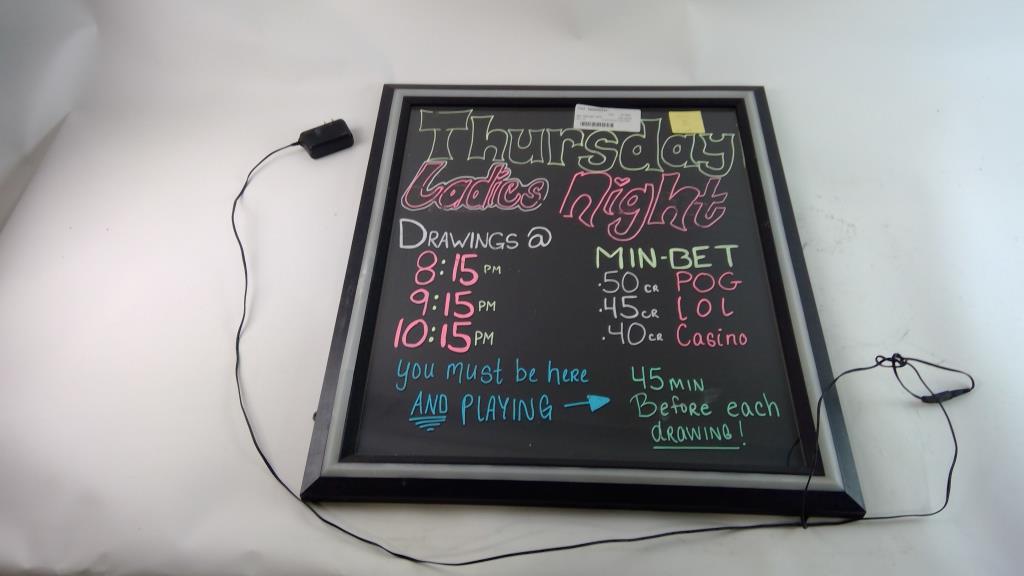 Thursday
Ladies Night
DRAWINGS @
8:15 PM
9:15 PM
10:15 PM
MIN-BET
.50 CR POG
.45 CR LOL
.40 CR Casino
you must be here
AND PLAYING →
45 MIN
Before each
DRAWING!